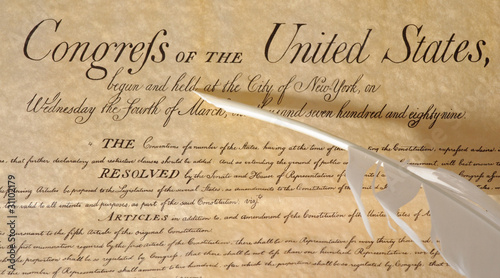 Congreſs OF THE United States,
begun and held at the City of New-York, on
Wednesday the Fourth of March, thousand seven hundred and eighty nine.
THE Conventions of a number of the States, having at the time of the Constitution, expressed a
that further declaratory and restrictive clauses should be added: And as extending the ground of public
RESOLVED by the Senate and House of Representatives of
Articles be proposed to the Legislatures of the several States, as amendments to the Constitution of the
valid to all intents and purposes, as part of the said Constitution, viz.
ARTICLES in addition to, and amendment of the Constitution of the United States of
pursuant to the fifth Article of the original Constitution.
enumeration required by the first Article of the Constitution, there shall be one Representative for every thirty thousand
proportion shall be so regulated by Congress, that there shall be not less than one hundred
of Representatives shall amount to two hundred, after which the proportion shall be so regulated by Congress, that
Adobe Stock | #31102179